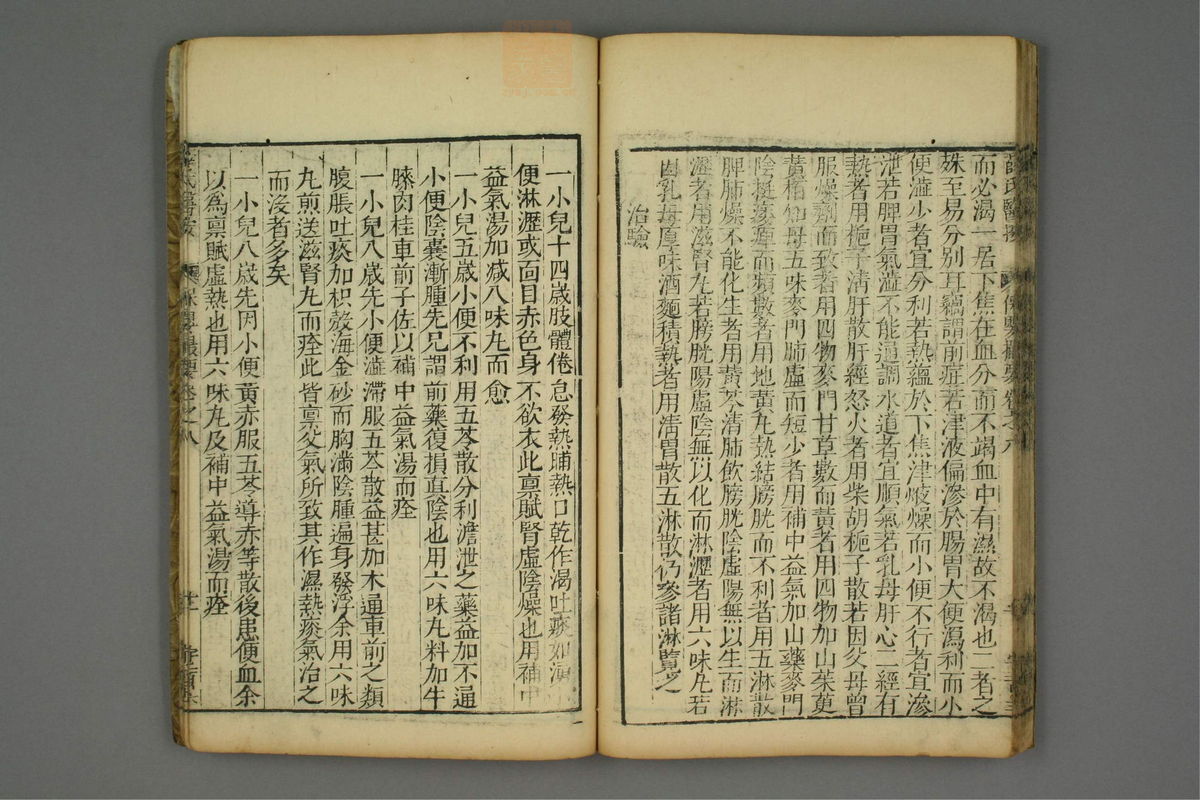 而必渴一居下焦在血分而不渴血中有濕故不渴也二者之
殊至易分別耳竊謂前症若津液偏滲於腸胃大便瀉利而小
便澁少者宜分利若熱蘊於下焦津液燥而小便不行者宜滲
泄若脾胃氣澁不能通調水道者宜順氣若乳母肝心二經有
熱者用梔子清肝散肝經怒火者用柴胡梔子散若因父母曾
服燥劑而致者用四物麥門甘草數而黃者用四物加山茱萸
黃栢知母五味麥門肺虛而短少者用補中益氣加山藥麥門
陰挺痿痺而頻數者用地黃丸熱結膀胱而不利者用五淋散
脾肺燥不能化生者用黃芩清肺飲膀胱陰虛陽無以生而淋
瀝者用滋腎丸若膀胱陽虛陰無以化而淋瀝者用六味丸若
因乳母厚味酒麵積熱者用清胃散五淋散仍參諸淋覽之
治驗
一小兒十四歲肢體倦怠發熱晡熱口乾作渴吐痰如湧小
便淋瀝或面目赤色身不欲衣此稟賦腎虛陰燥也用補中
益氣湯加减八味丸而愈
一小兒五歲小便不利用五苓散分利澹泄之藥益加不通
小便陰囊漸腫先兄謂前藥復損真陰也用六味丸料加牛
膝肉桂車前子佐以補中益氣湯而痊
一小兒八歲先小便澁滯服五苓散益甚加木通車前之類
腹脹吐痰加枳殼海金砂而胸滿陰腫遍身發浮余用六味
丸煎送滋腎丸而痊此皆稟父氣所致其作濕熱痰氣治之
而歿者多矣
一小兒八歲先因小便黃赤服五苓導赤等散後患便血余
以為稟賦虛熱也用六味丸及補中益氣湯而痊